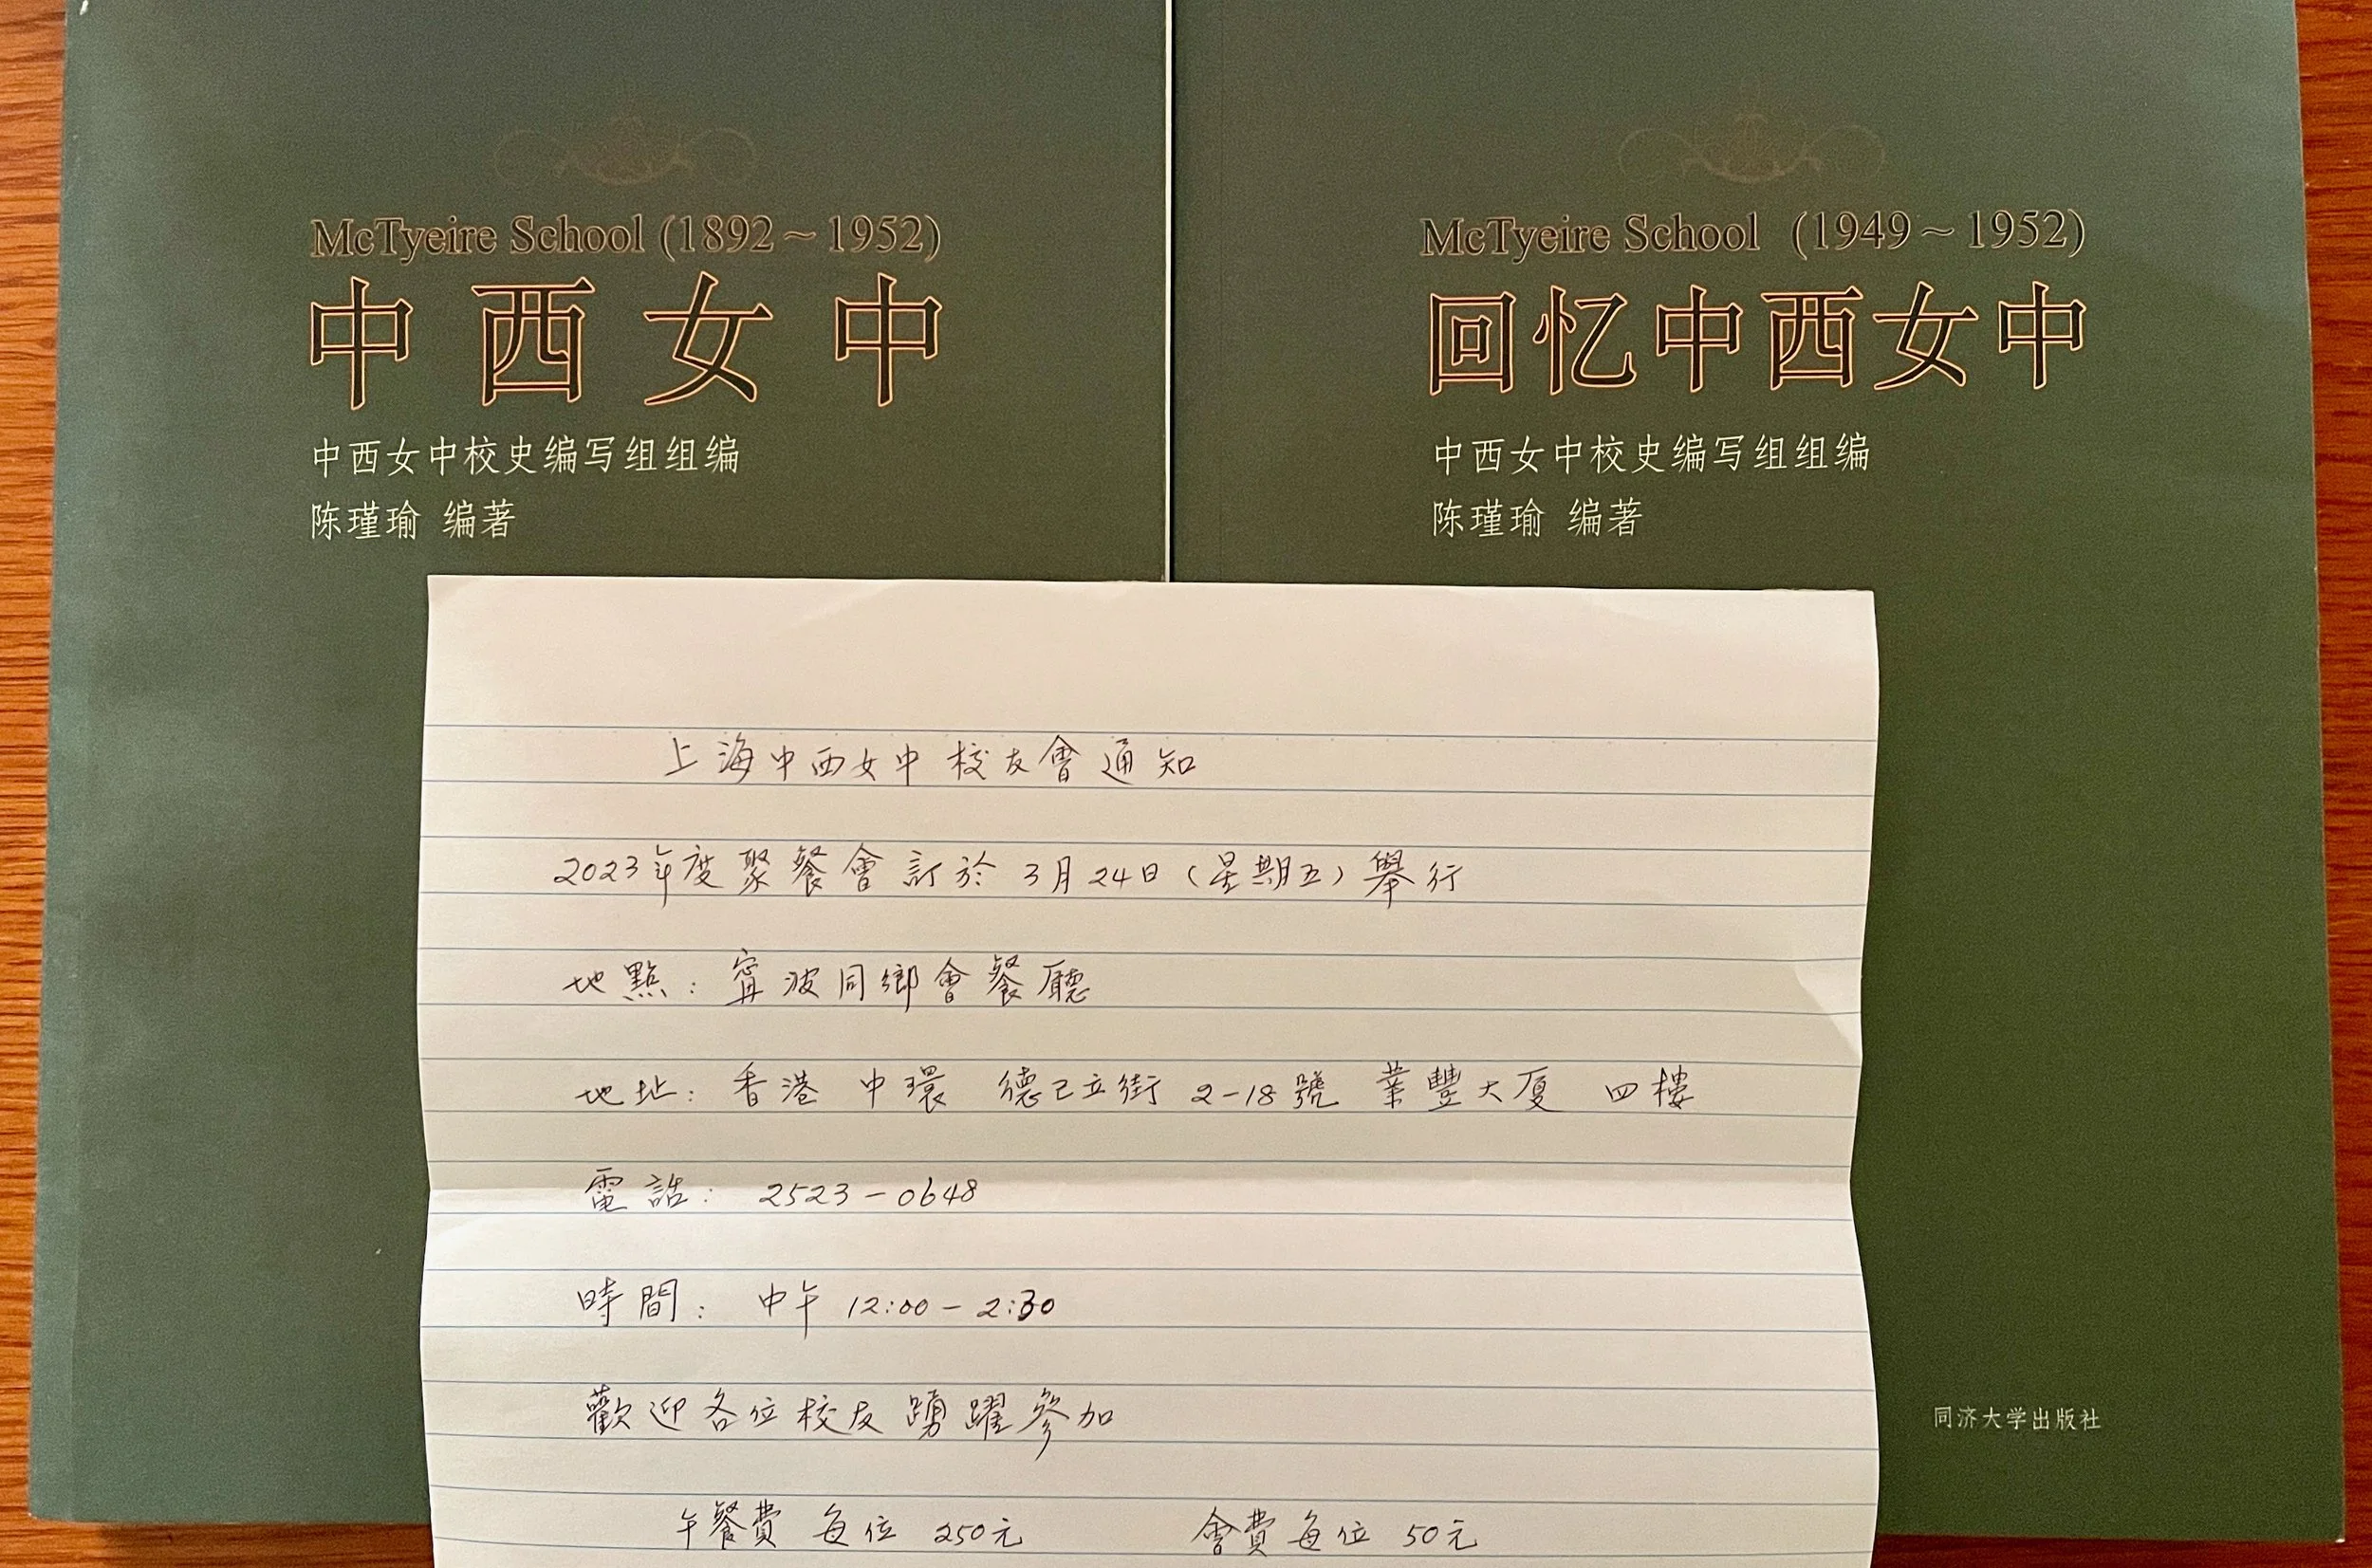 McTyeire School (1892～1952)
中西女中
中西女中校史编写组组编
陈瑾瑜 编著
McTyeire School (1949～1952)
回忆中西女中
中西女中校史编写组组编
陈瑾瑜 编著
同济大学出版社
上海中西女中校友會通知
2023年度聚餐會訂於3月24日(星期五)舉行
地點: 甯波同鄉會餐廳
地址: 香港 中環 德己立街 2-18號 業豐大厦 四樓
電話: 2523-0648
時間: 中午 12:00-2:30
歡迎各位校友踴躍參加
午餐費 每位 250元 會費每位 50元